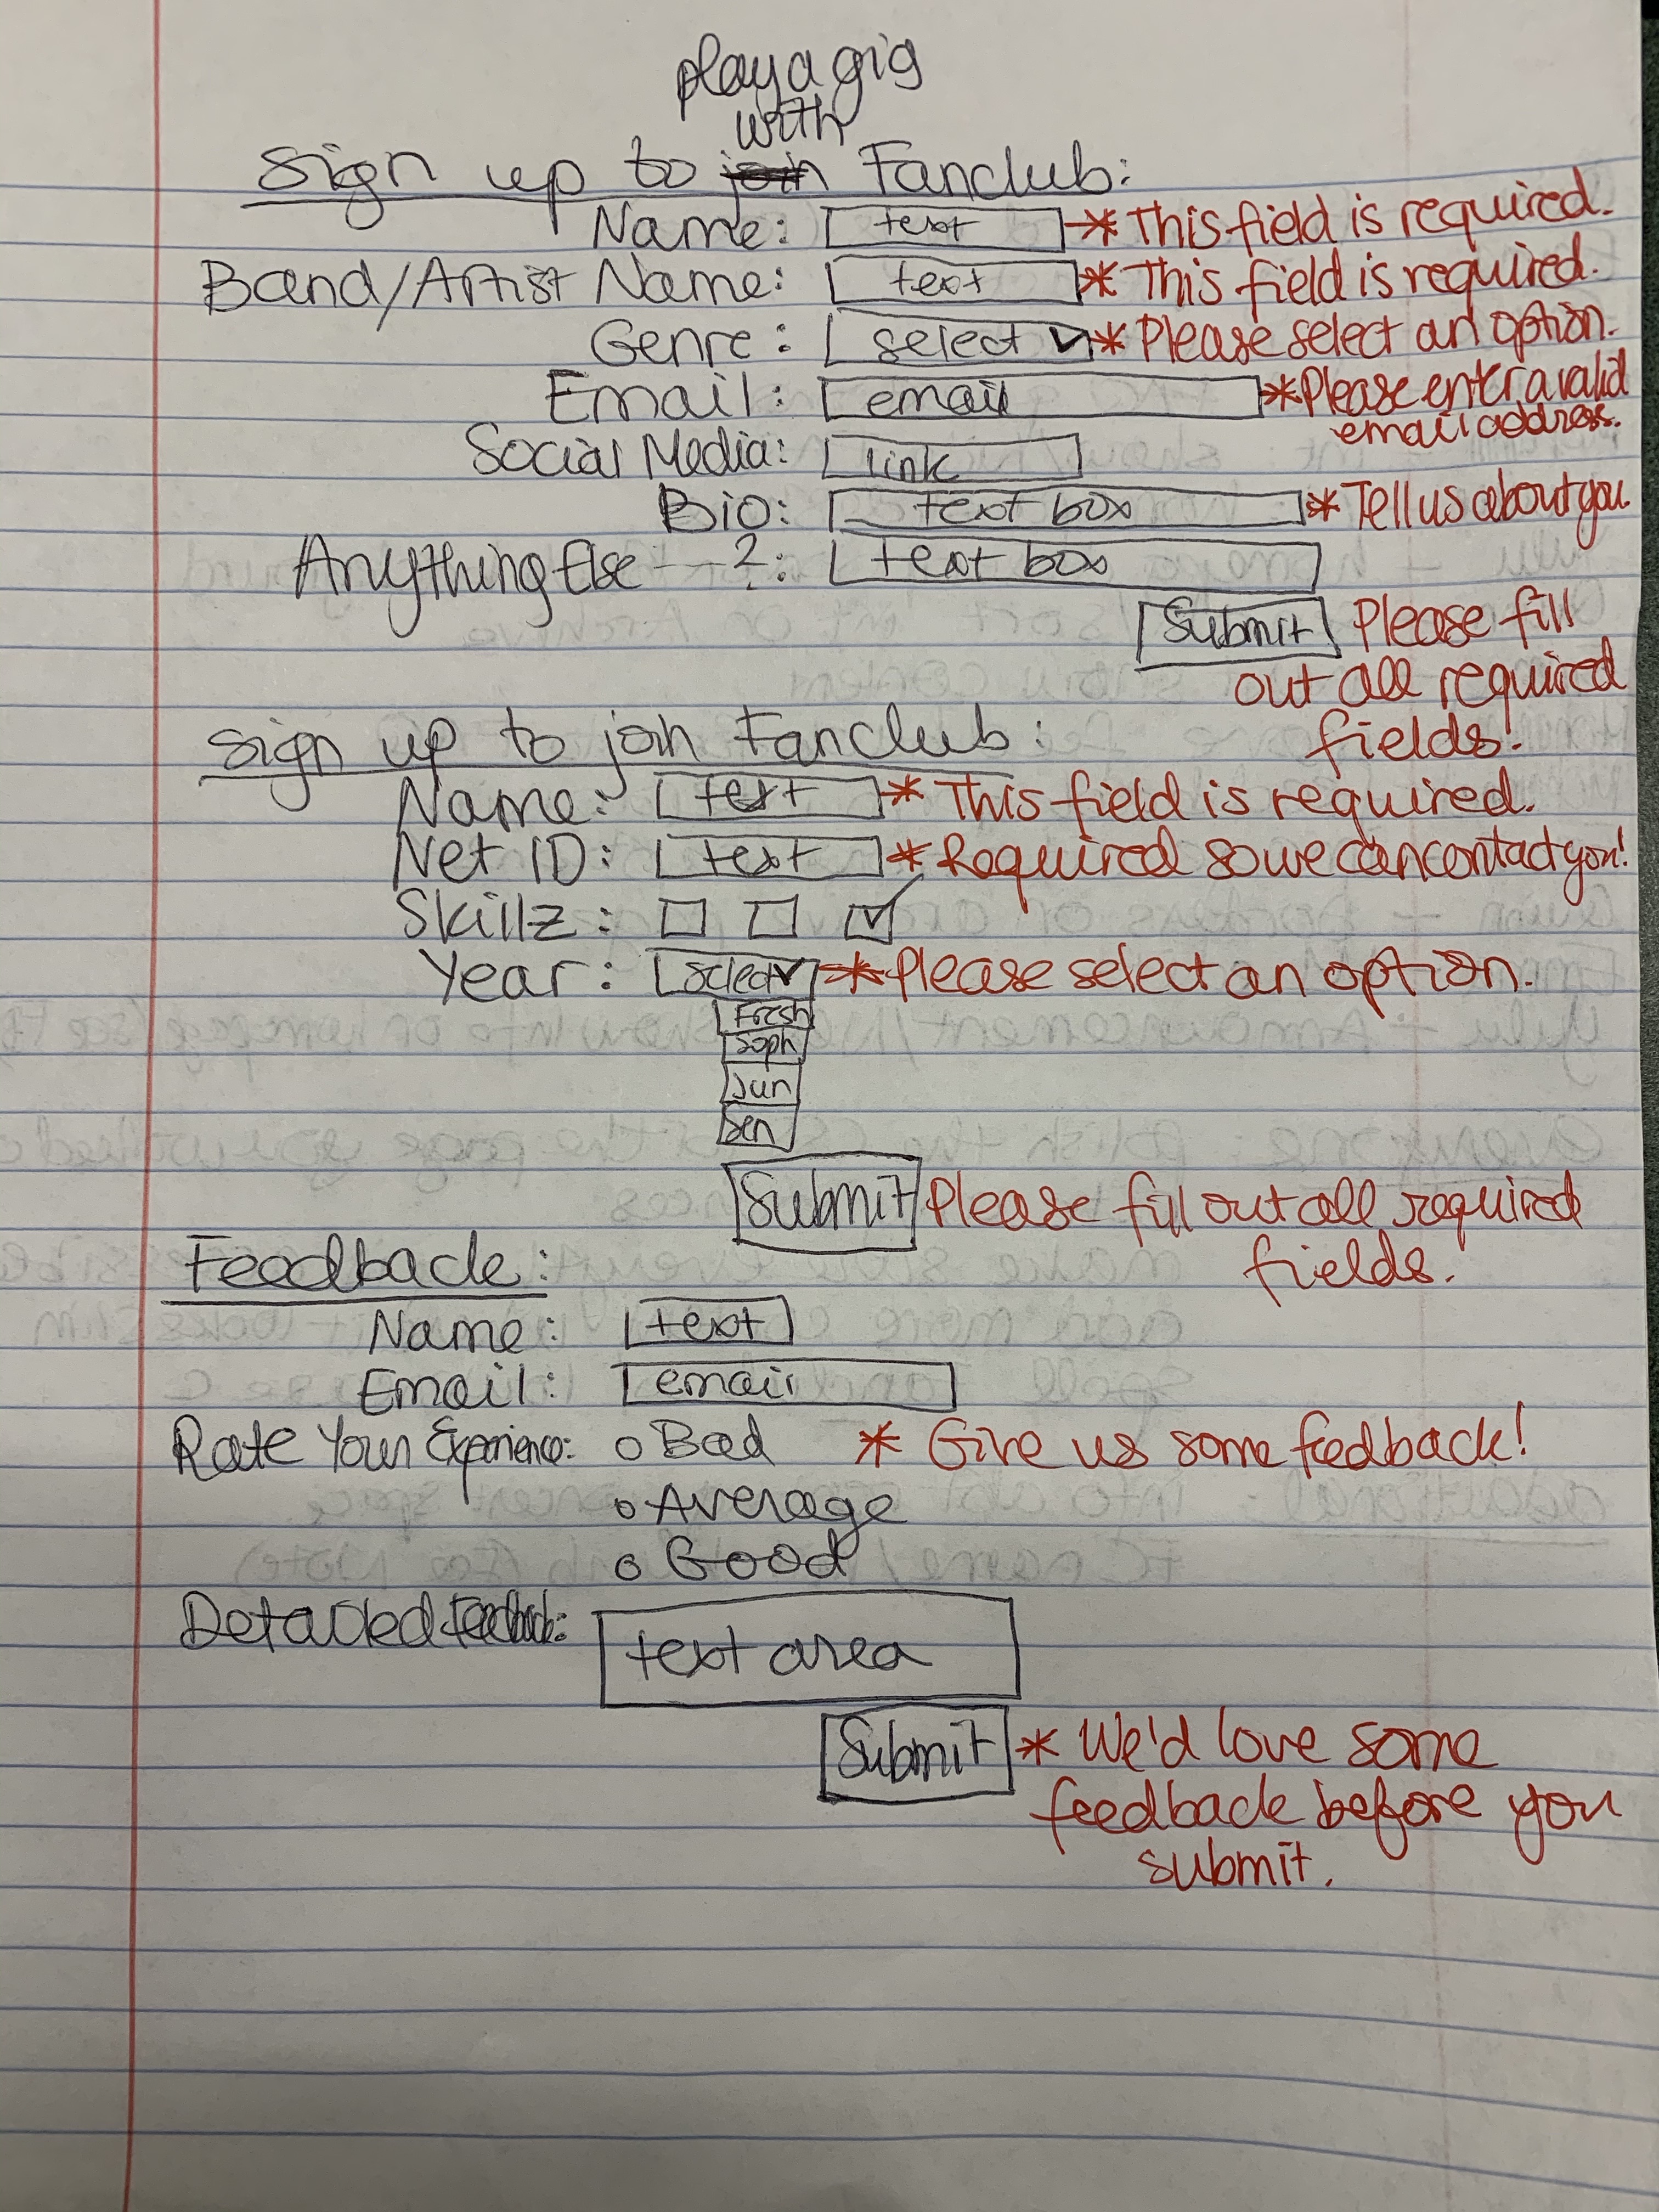 play a gig
with
Sign up to join Fanclub:
Name: text * This field is required.
Band/Artist Name: text * This field is required.
Genre: select * Please select an option.
Email: email * Please enter a valid
email address.
Social Media: link
Bio: text box * Tell us about you
Anything Else ---?: text box
Submit Please fill
out all required
fields!
Sign up to join Fanclub:
Name: text * This field is required.
Net ID: text * Required so we can contact you!
Skillz:
Year: select * Please select an option.
Fresh
Soph
Jun
Sen
Submit Please fill out all required
fields.
Feedback:
Name: text
Email: email
Rate Your Experience: Bad * Give us some feedback!
Average
Good
Detailed Feedback:
text area
Submit * We'd love some
feedback before you
submit.